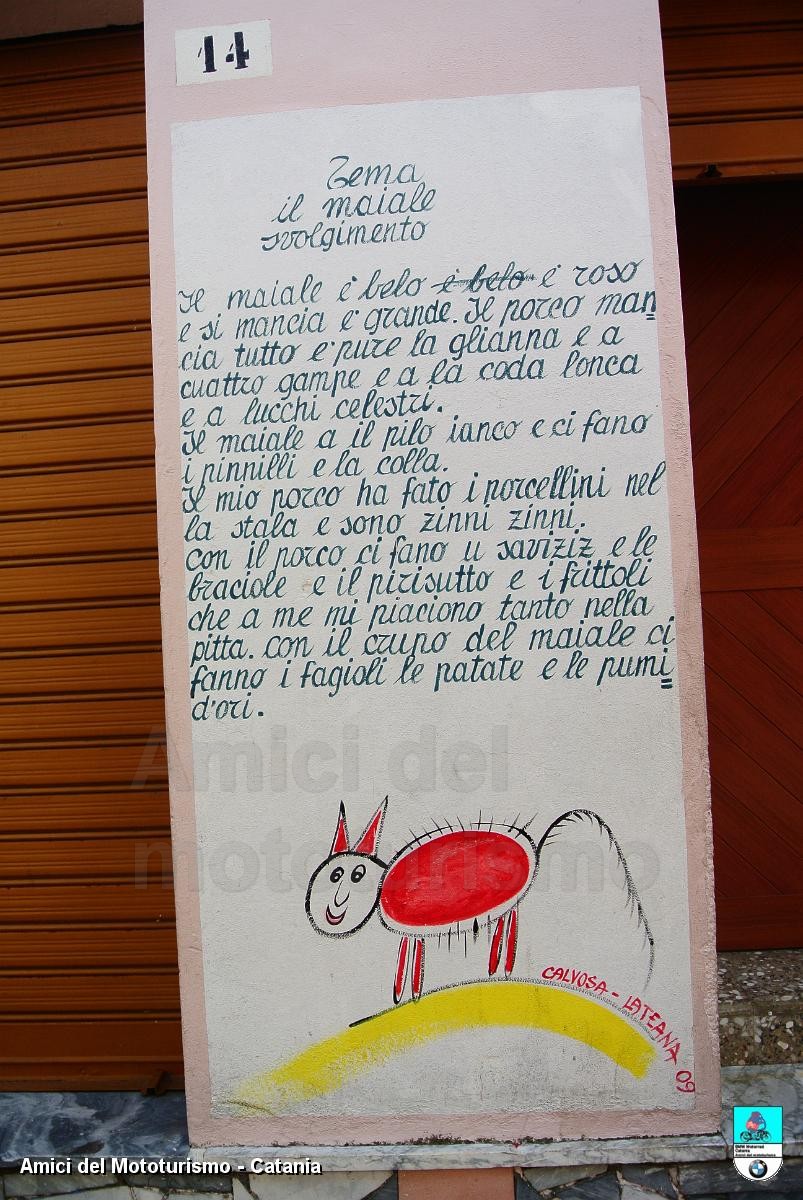 14
Tema
il maiale
svolgimento
Il maiale é belo é belo é roso
e si mancia é grande. Il porco man=
cia tutto é pure la glianna e a
cuattro gampe e a la coda lonca
e a lucchi celestri.
Il maiale a il pilo ianco e ci fano
i pinnilli e la colla.
Il mio porco ha fato i porcellini nel
la stala e sono zinni zinni.
con il porco ci fano u saviziz e le
braciole e il pirisutto e i frittoli
che a me mi piaciono tanto nella
pitta. con il crupo del maiale ci
fanno i fagioli le patate e le pumi=
d'ori.
Amici del
mototurismo
CALVOSA - LATEANA 09
Amici del Mototurismo - Catania
BMW Motorrad
Catania
Amici del mototurismo
BMW